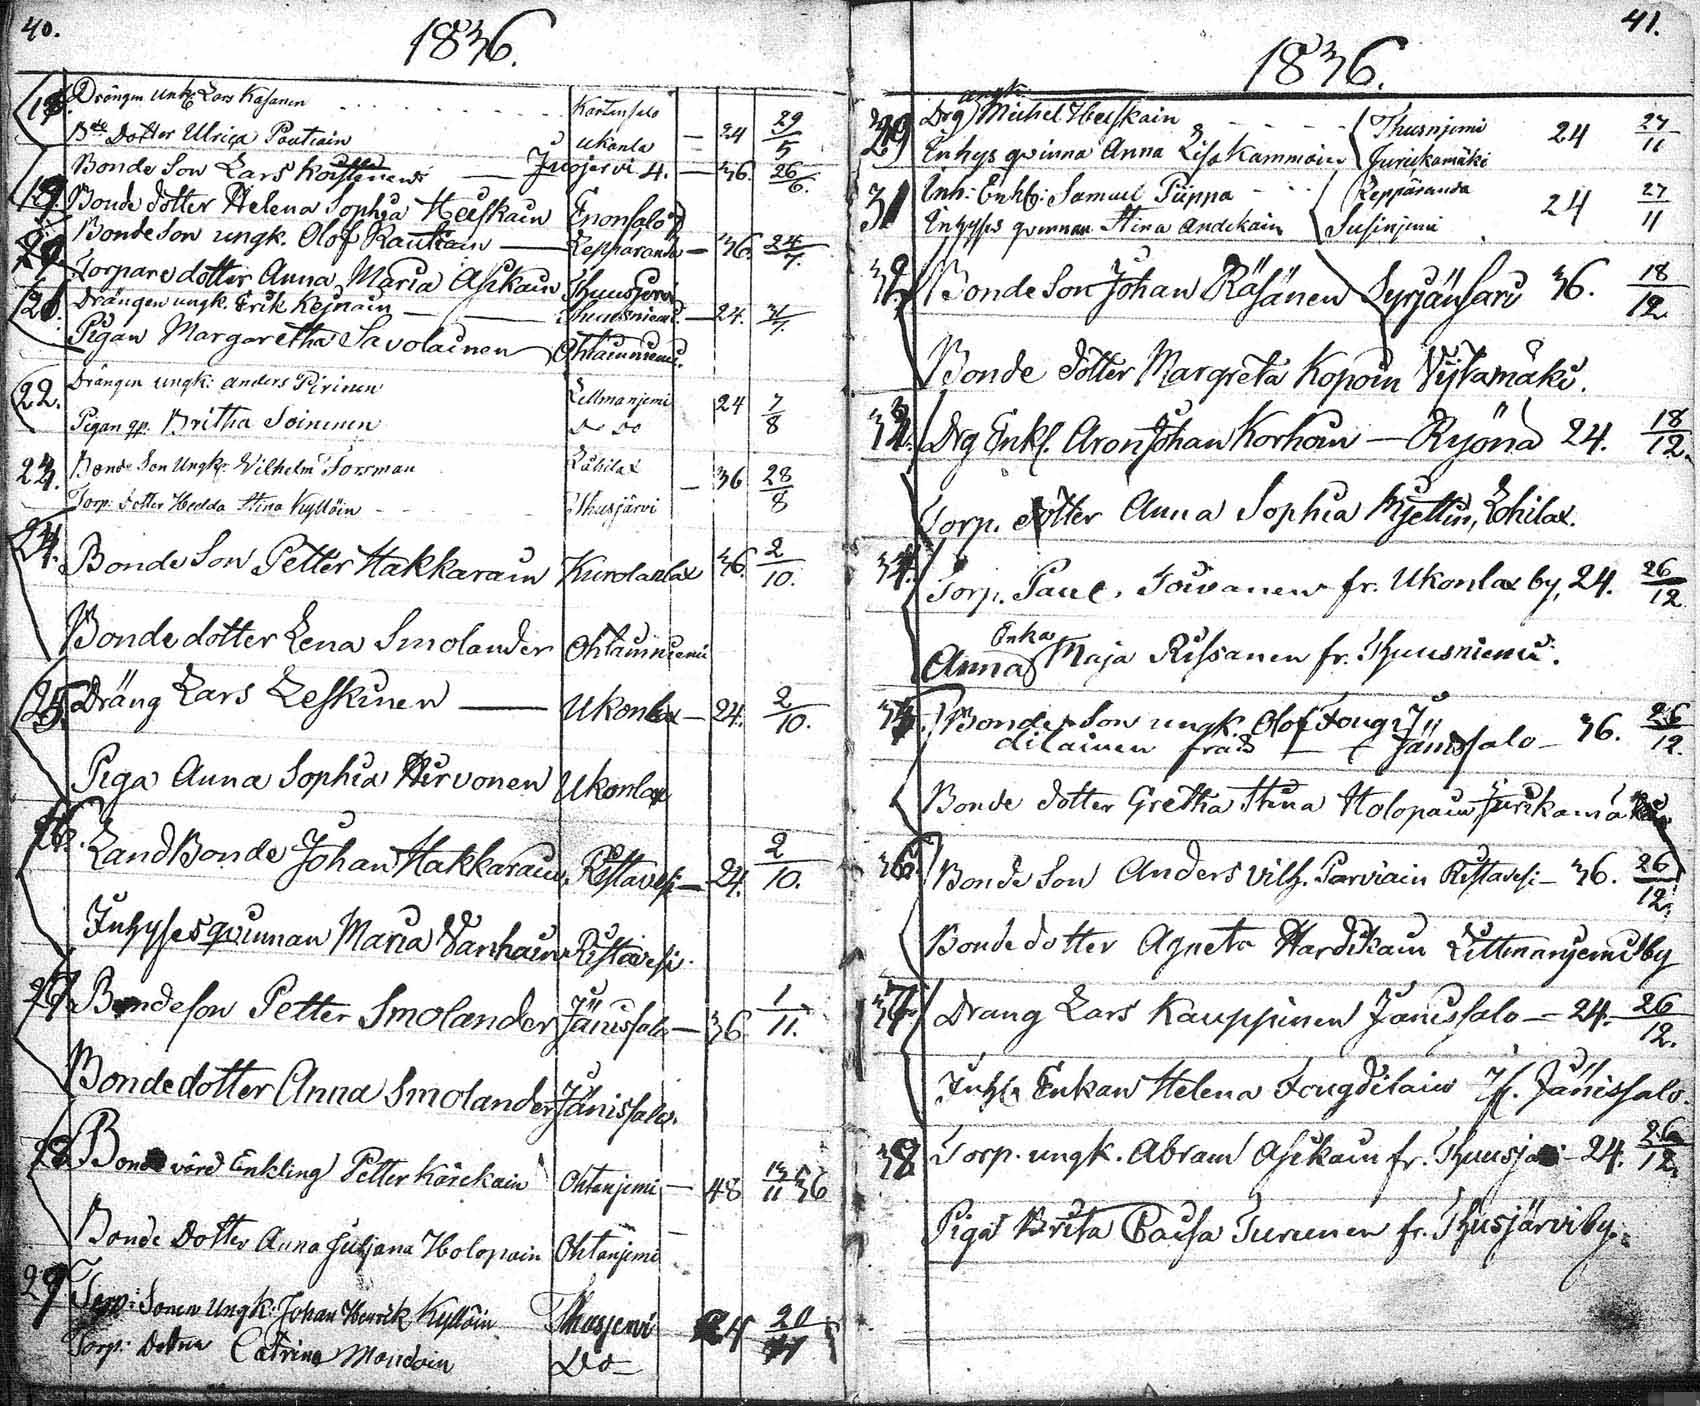 40.
1836.
18. Drängen Ungk. Lars Kasanen - - - - Kartensalo
B:de Dotter Ulrica Poutiain Ukonla — 24 29/5
Bonde Son Lars — Juojervi 4. — 36. 26/6.
19. Bonde dotter Helena Sophia Heiskain Enonsalo
20. Bonde Son ungk. Olof Rautiain — Lepparanda — 36. 24/7.
Torpare dotter Anna Maria Asikain Thuusjervi
21. Drängen ungk. Erik Rejnain — Thuusniemi. — 24. 31/7.
Pigan Margaretha Savolainen Ohtaanniemi.
22. Drängen ungk: Anders Pirinen Littmanjemi 24 7/8
Pigan qp. Britha Soininen do do
23. Bonde Son Ungk: Wilhelm Torsman Labilax — 36 28/8
Torp: dotter Hedda Stina Kyllöin - - - Thusjärvi
24. Bonde Son Petter Hakkarain Kurolanlax 36. 2/10.
Bonde dotter Lena Smolander Ohtaanniemi
25. Dräng Lars Leskinen — Ukonlax — 24. 2/10.
Piga Anna Sophia Hirvonen Ukonlax
26. Land Bonde Johan Hakkarain, Ristavesi — 24. 2/10.
Inhyses qvinnan Maria Vanhain Ristavesi.
27. Bondeson Petter Smolander Jänissalo — 36. 1/11.
Bondedotter Anna Smolander Jänissalo.
28. Bonde värd Enkling Petter Kärckain Ohtanjemi — 48 13/11 36
Bonde Dotter Anna Juljana Holopain Ohtanjemi
29 Torp: Sonen Ungk: Johan Henrik Kyllöin Thusjervi 24 20/11
Torp: Dottren Catrina Mondoin Do
41.
1836.
angk.
Drg Michel Heiskain - - - - Thusnjemi 24 27/11
Inhys qvinna Anna Lisa Kammoin Jurickamäki
31 Inh: Enkl: Samuel Piippa - - - Leppäranda 24 27/11
Inhyses qvinnan Stina Andikain Susinjemi
32. Bonde Son Johan Räsänen Syrjänsari 36. 18/12.
Bonde dotter Margreta Kopoin Vijtamäki.
33. Drg Enkl. Aron Johan Korhoin — Ryönä 24. 18/12.
Torp. dotter Anna Sophia Mjettin, Lohilax.
34. Torp. Paul. Toivanen fr. Ukonlax by, 24. 26/12
Enka
Anna Maja Rissanen fr. Thuusniemi.
35. Bonde Son ungk. Olof Fougt
dilainen från — Jänissalo — 36. 26/12.
Bonde dotter Gretha Stina Holopain Jurikamä
36. Bonde Son Anders Vilh. Parviain Ristavesi — 36. 26/12.
Bonde dotter Agneta Hardikain Littmanjemi by
37. Dräng Lars Kauppinen Jänissalo — 24. — 26/12.
Inhs. Enkan Helena Fougdilain Jänissalo.
38 Torp. ungk. Abram Asikain fr. — 24. 26/12.
Piga Brita Caisa Turunen fr. Thusjärvi by.